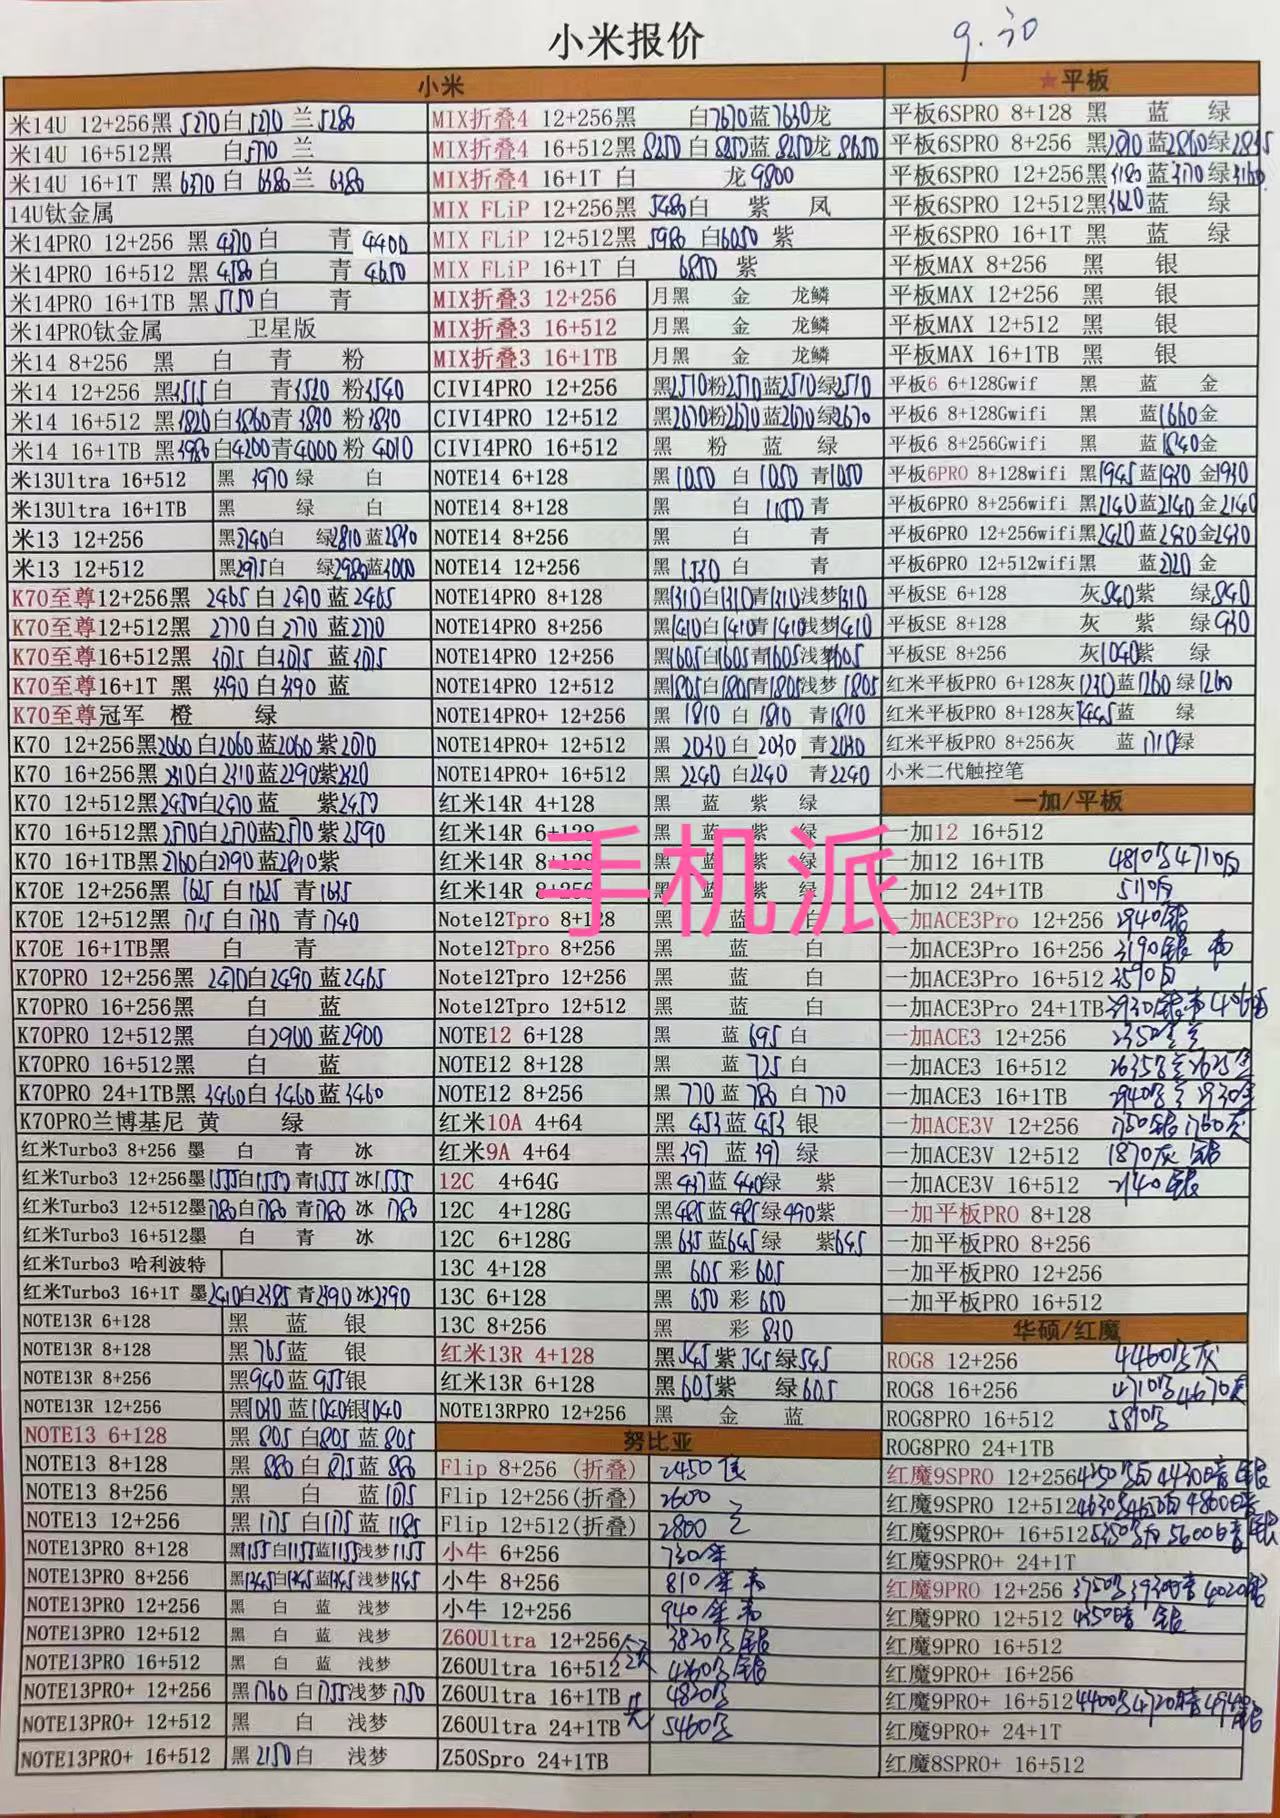 小米报价
9.30
小米
米14U 12+256黑5270白5270 兰5280
米14U 16+512黑 白 兰
米14U 16+1T 黑6370 白 6380兰 6380
14U钛金属
米14PRO 12+256 黑4370白 青4400
米14PRO 16+512 黑4580白 青4650
米14PRO 16+1TB 黑5150白 青
米14PRO钛金属 卫星版
米14 8+256 黑 白 青 粉
米14 12+256 黑3515白 青3520 粉3540
米14 16+512 黑3820白3860青3830 粉3830
米14 16+1TB 黑3980白4200青4000 粉4010
米13Ultra 16+512 黑 3970 绿 白
米13Ultra 16+1TB 黑 绿 白
米13 12+256 黑2740白 绿2810蓝2840
米13 12+512 黑2975白 绿2980蓝3000
K70至尊12+256黑 2465 白2470 蓝2465
K70至尊12+512黑 2770 白2770 蓝2770
K70至尊16+512黑 3075 白3075 蓝3075
K70至尊16+1T 黑 3390 白3390 蓝
K70至尊冠军 橙 绿
K70 12+256黑2060白2060蓝2060紫2070
K70 16+256黑2310白2310蓝2290紫2320
K70 12+512黑2450白2470蓝 紫2450
K70 16+512黑2570白2570蓝2570紫2590
K70 16+1TB黑2760白2790蓝2810紫
K70E 12+256黑 1625 白1625 青1635
K70E 12+512黑 1715 白1730 青1740
K70E 16+1TB黑 白 青
K70PRO 12+256黑 2470白2490 蓝2465
K70PRO 16+256黑 白 蓝
K70PRO 12+512黑 白2900蓝2900
K70PRO 16+512黑 白 蓝
K70PRO 24+1TB黑 3460白3460蓝3460
K70PRO兰博基尼 黄 绿
红米Turbo3 8+256 墨 白 青 冰
红米Turbo3 12+256墨1555白1550青1555冰1555
红米Turbo3 12+512墨1780白1780青1780冰1780
红米Turbo3 16+512墨 白 青 冰
红米Turbo3 哈利波特
红米Turbo3 16+1T 墨2410白2385青2390冰2390
NOTE13R 6+128 黑 蓝 银
NOTE13R 8+128 黑765蓝 银
NOTE13R 8+256 黑940蓝955银
NOTE13R 12+256 黑1030蓝1040银1040
NOTE13 6+128 黑 805 白805 蓝 805
NOTE13 8+128 黑 880 白875 蓝 880
NOTE13 8+256 黑 白 蓝1075
NOTE13 12+256 黑1175 白1175 蓝1185
NOTE13PRO 8+128 黑1155白1155蓝1155浅梦1155
NOTE13PRO 8+256 黑1345白1345蓝1345浅梦1345
NOTE13PRO 12+256 黑 白 蓝 浅梦
NOTE13PRO 12+512 黑 白 蓝 浅梦
NOTE13PRO 16+512 黑 白 蓝 浅梦
NOTE13PRO+ 12+256 黑1760白1755浅梦1750
NOTE13PRO+ 12+512 黑 白 浅梦
NOTE13PRO+ 16+512 黑2150白 浅梦
MIX折叠4 12+256黑 白7670蓝7630龙
MIX折叠4 16+512黑8250白8250蓝8250龙8650
MIX折叠4 16+1T 白 龙9800
MIX FLiP 12+256黑 5480白 紫 凤
MIX FLiP 12+512黑 5980 白6050 紫
MIX FLiP 16+1T 白 6850 紫
MIX折叠3 12+256 月黑 金 龙鳞
MIX折叠3 16+512 月黑 金 龙鳞
MIX折叠3 16+1TB 月黑 金 龙鳞
CIVI4PRO 12+256 黑2510粉2510蓝2510绿2510
CIVI4PRO 12+512 黑2670粉2670蓝2670绿2670
CIVI4PRO 16+512 黑 粉 蓝 绿
NOTE14 6+128 黑1050 白1050 青1050
NOTE14 8+128 黑 白1150青
NOTE14 8+256 黑 白 青
NOTE14 12+256 黑1530 白 青
NOTE14PRO 8+128 黑1310白1310青1310浅梦1310
NOTE14PRO 8+256 黑1410白1410青1410浅梦1410
NOTE14PRO 12+256 黑1605白1605青1605浅梦1605
NOTE14PRO 12+512 黑1805白1805青1805浅梦1805
NOTE14PRO+ 12+256 黑 1810 白 1810 青1810
NOTE14PRO+ 12+512 黑 2030 白 2030 青2030
NOTE14PRO+ 16+512 黑 2240 白2240 青2240
红米14R 4+128 黑 蓝 紫 绿
红米14R 6+128 黑 蓝 紫 绿
红米14R 8+128 黑 蓝 紫 绿
红米14R 8+256 黑 蓝 紫 绿
手机派
Note12Tpro 8+128 黑 蓝 白
Note12Tpro 8+256 黑 蓝 白
Note12Tpro 12+256 黑 蓝 白
Note12Tpro 12+512 黑 蓝 白
NOTE12 6+128 黑 蓝695白
NOTE12 8+128 黑 蓝725白
NOTE12 8+256 黑770 蓝780 白770
红米10A 4+64 黑 453蓝 453 银
红米9A 4+64 黑397 蓝397 绿
12C 4+64G 黑437蓝440绿 紫
12C 4+128G 黑485蓝485绿490紫
12C 6+128G 黑635蓝645绿 紫645
13C 4+128 黑 605 彩605
13C 6+128 黑 650 彩 650
13C 8+256 黑 彩 830
红米13R 4+128 黑545紫545绿545
红米13R 6+128 黑605紫 绿605
NOTE13RPRO 12+256 黑 金 蓝
努比亚
Flip 8+256 (折叠) 2450
Flip 12+256(折叠) 2600
Flip 12+512(折叠) 2800
小牛 6+256 730
小牛 8+256 810
小牛 12+256 940
Z60Ultra 12+256 3820 银
Z60Ultra 16+512 银
Z60Ultra 16+1TB 4820
Z60Ultra 24+1TB 5460
Z50Spro 24+1TB
★平板
平板6SPRO 8+128 黑 蓝 绿
平板6SPRO 8+256 黑2810蓝2860绿2845
平板6SPRO 12+256黑3180蓝3170绿3160
平板6SPRO 12+512黑3620蓝 绿
平板6SPRO 16+1T 黑 蓝 绿
平板MAX 8+256 黑 银
平板MAX 12+256 黑 银
平板MAX 12+512 黑 银
平板MAX 16+1TB 黑 银
平板6 6+128Gwif 黑 蓝 金
平板6 8+128Gwifi 黑 蓝1660金
平板6 8+256Gwifi 黑 蓝1840金
平板6PRO 8+128wifi 黑1945蓝1930金1930
平板6PRO 8+256wifi 黑2140蓝2140金2140
平板6PRO 12+256wifi黑2420蓝2430金2430
平板6PRO 12+512wifi黑 蓝2720金
平板SE 6+128 灰840紫 绿840
平板SE 8+128 灰 紫 绿930
平板SE 8+256 灰1040紫 绿
红米平板PRO 6+128灰1230蓝1260 绿1260
红米平板PRO 8+128灰1445蓝 绿
红米平板PRO 8+256灰 蓝1710绿
小米二代触控笔
一加/平板
一加12 16+512
一加12 16+1TB 4810 4710白
一加12 24+1TB 白
一加ACE3Pro 12+256 2940银
一加ACE3Pro 16+256 3190银
一加ACE3Pro 16+512 3590
一加ACE3Pro 24+1TB 3930
一加ACE3 12+256 2350
一加ACE3 16+512 2635 2625
一加ACE3 16+1TB 2940 2930
一加ACE3V 12+256 1750银1760灰
一加ACE3V 12+512 1870灰 银
一加ACE3V 16+512 2140银
一加平板PRO 8+128
一加平板PRO 8+256
一加平板PRO 12+256
一加平板PRO 16+512
华硕/红魔
ROG8 12+256 4460 灰
ROG8 16+256 4710 4670
ROG8PRO 16+512 5810
ROG8PRO 24+1TB
红魔9SPRO 12+256 4430暗 银
红魔9SPRO 12+512 4800暗
红魔9SPRO+ 16+512 5600暗 银
红魔9SPRO+ 24+1T
红魔9PRO 12+256 3750 3930暗 4020银
红魔9PRO 12+512 4350暗 银
红魔9PRO 16+512
红魔9PRO+ 16+256
红魔9PRO+ 16+512 4400 4720暗 银
红魔9PRO+ 24+1T
红魔8SPRO+ 16+512